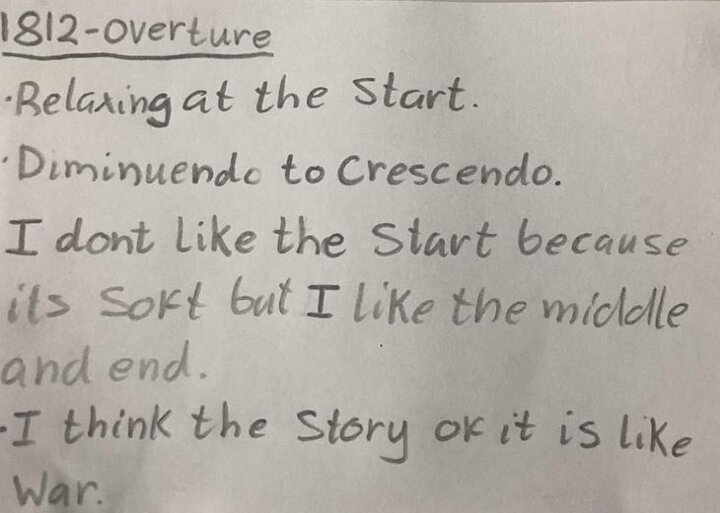 1812-overture
·Relaxing at the Start.
·Diminuendo to Crescendo.
I dont like the Start because
its Soft but I like the middle
and end.
·I think the Story of it is like
War.